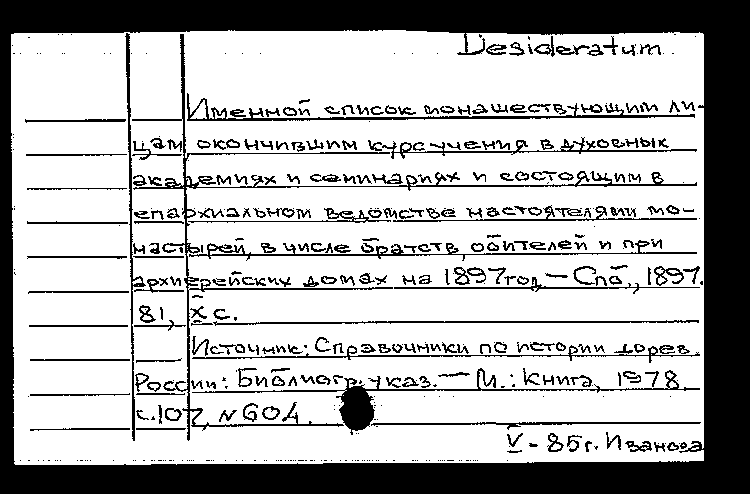 Desideratum
Именной список монашествующим ли-
цам, окончившим курс учения в духовных
академиях и семинариях и состоящим в
епархиальном ведомстве настоятелями мо-
настырей, в числе братств, обителей и при
архиерейских домах на 1897 год. — Спб., 1897.
81, X с.
Источник: Справочники по истории дорев.
России: Библиогр. указ. — М.: Книга, 1978,
с. 107, N 604.
V - 85 г. Иванова